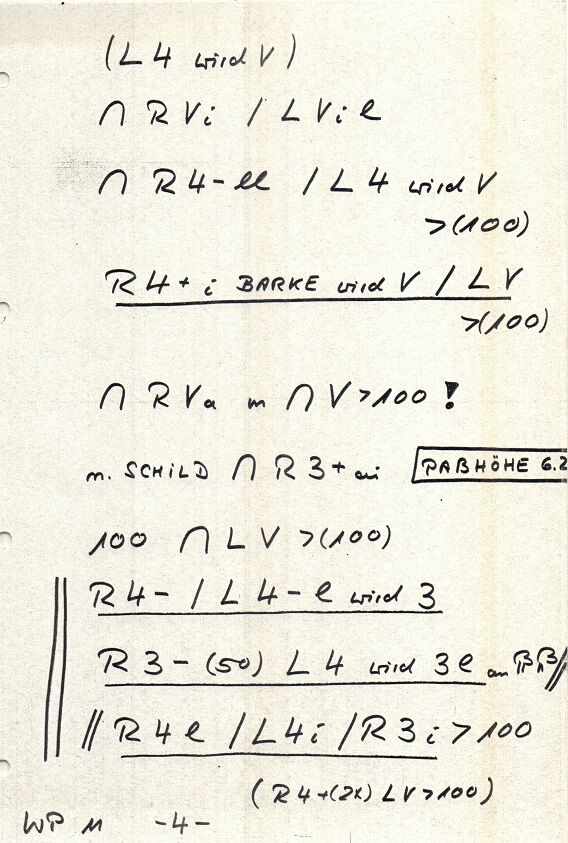 (L4 wird V)
∩ R Vi / L Vi e
∩ R4-ee / L4 wird V
>(100)
R4+ i BARKE wird V / LV
>(100)
∩ R Va m ∩ V>100!
m. SCHILD ∩ R3+ ai PAßHÖHE 6.2
100 ∩ LV >(100)
R4- / L4-e wird 3
R3-(50) L4 wird 3e an
// R4e / L4i / R3i >100
(R4+(2x) LV>100)
WP 11 -4-